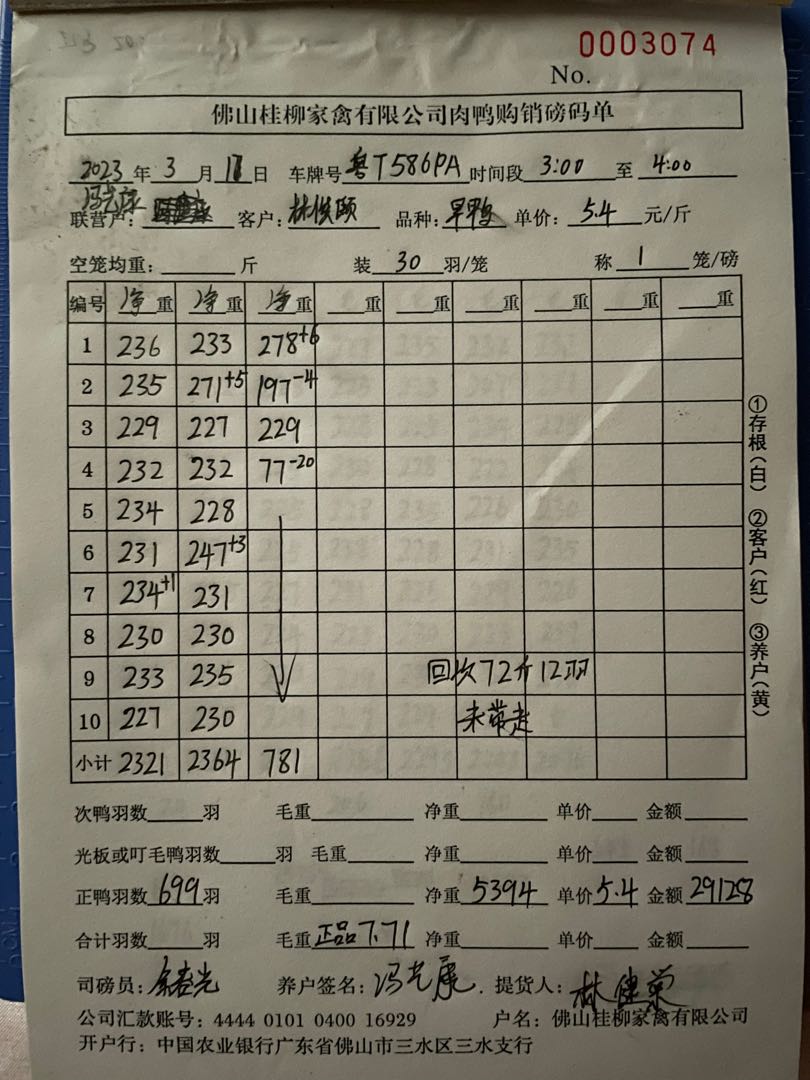 0003074
No.
佛山桂柳家禽有限公司肉鸭购销磅码单
2023 年 3 月 11 日 车牌号 粤T586PA 时间段 3:00 至 4:00
联营户: 客户: 林俊颐 品种: 旱鸭 单价: 5.4 元/斤
空笼均重: 斤 装 30 羽/笼 称 1 笼/磅
编号 净重 净重 净重 重 重 重 重 重 重
1 236 233 278+6
2 235 271+5 197-4
3 229 227 229
4 232 232 77-20
5 234 228
6 231 247+3
7 234+1 231
8 230 230
9 233 235 回收72斤12羽
10 227 230 未带走
小计 2321 2364 781
①存根(白) ②客户(红) ③养户(黄)
次鸭羽数 羽 毛重 净重 单价 金额
光板或叮毛鸭羽数 羽 毛重 净重 单价 金额
正鸭羽数 699 羽 毛重 净重 5394 单价 5.4 金额 29128
合计羽数 羽 毛重 正品7.71 净重 单价 金额
司磅员: 养户签名: 冯志康 提货人: 林健荣
公司汇款账号: 4444 0101 0400 16929 户名: 佛山桂柳家禽有限公司
开户行: 中国农业银行广东省佛山市三水区三水支行